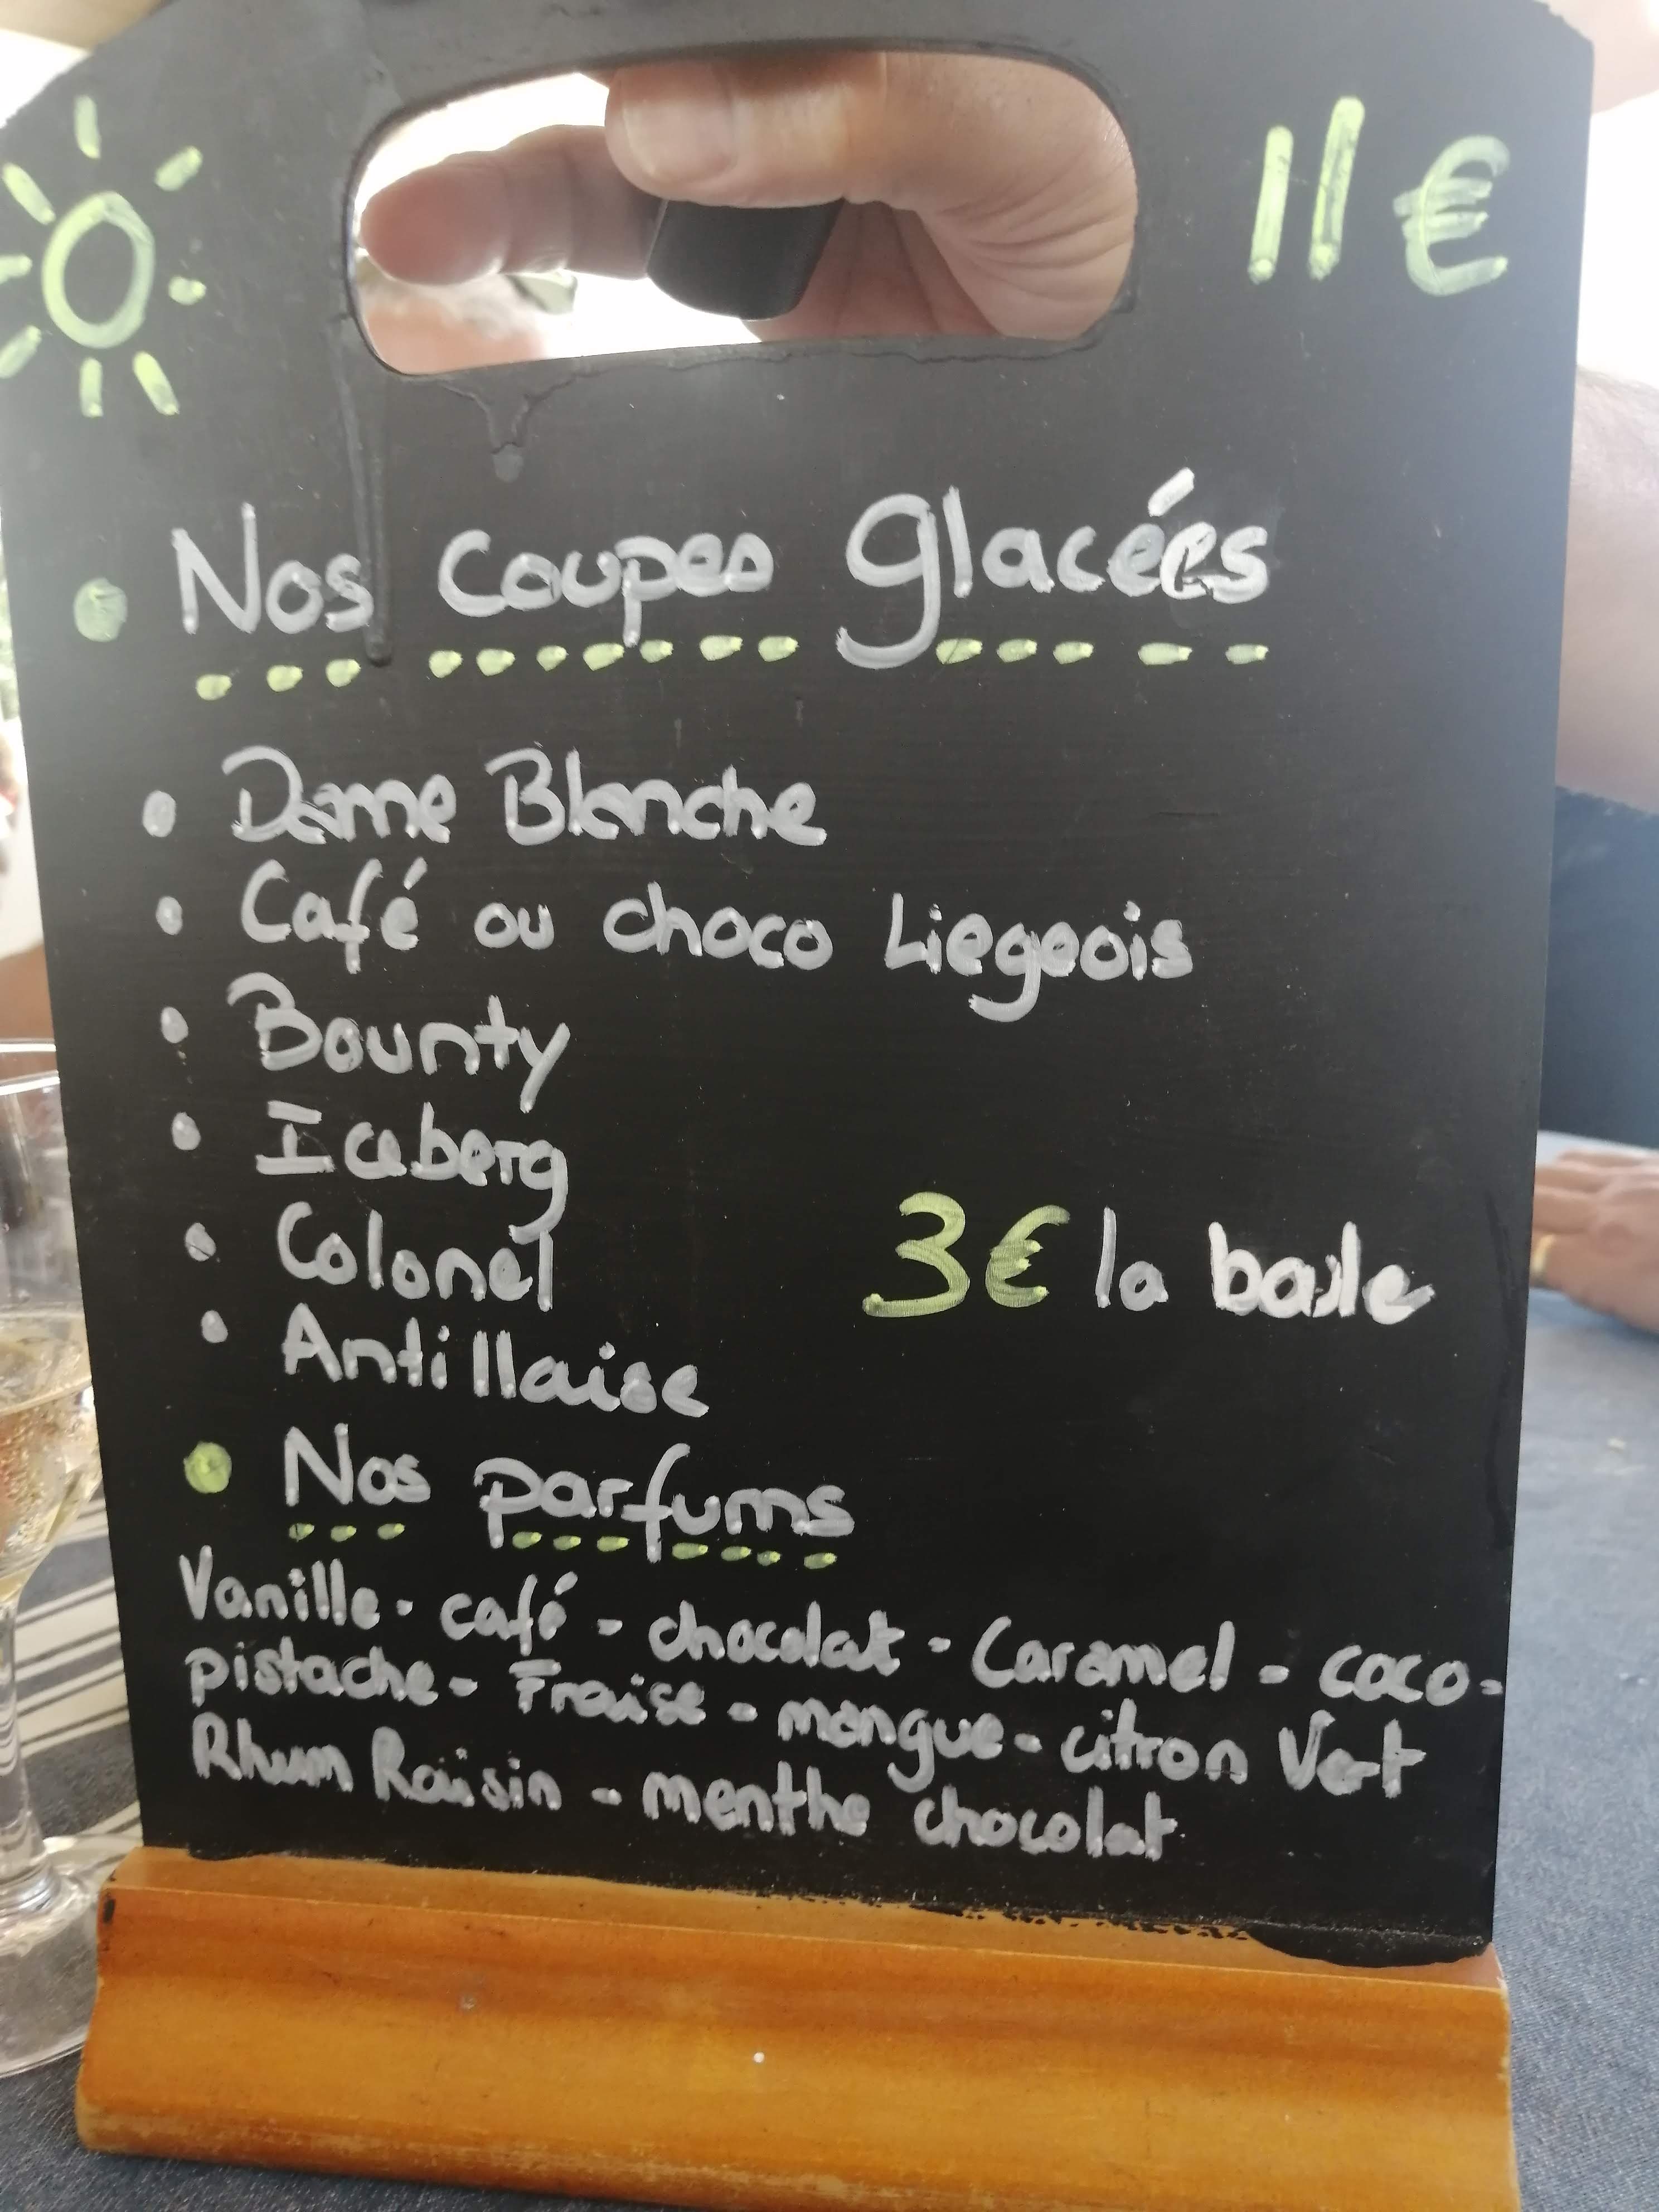 11€
Nos Coupes glacées
Dame Blanche
Café ou choco Liegeois
Bounty
Iceberg
Colonel
3€ la boule
Antillaise
Nos parfums
Vanille - café - chocolat - Caramel - coco -
pistache - Fraise - mangue - citron Vert
Rhum Raisin - menthe chocolat